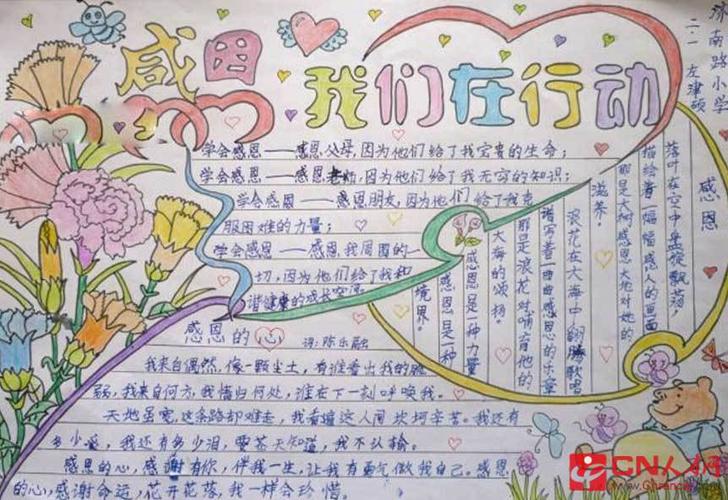 感恩
我们在行动
济南路小学
二·一 左津硕
学会感恩——感恩父母,因为他们给了我宝贵的生命;
学会感恩——感恩老师,因为他们给了我无穷的知识;
学会感恩——感恩朋友,因为他们给了我克
服困难的力量;
学会感恩——感恩我周围的一
切,因为他们给了我和
谐健康的成长空间。
感恩
落叶在空中盘旋飘落,
描绘着一幅幅感人的画面
那是大树感恩大地对她的
滋养。
浪花在大海中翻腾歌唱
谱写着一曲曲感恩的乐章
那是浪花对哺育他的
大海的颂扬。
感恩是一种力量
感恩是一种
境界。
感恩的心 词:陈乐融
我来自偶然,像一颗尘土,有谁看出我的脆
弱,我来自何方,我情归何处,谁在下一刻呼唤我。
天地虽宽,这条路却难走,我看遍这人间坎坷辛苦。我还有
多少爱,我还有多少泪,要苍天知道,我不认输。
感恩的心,感谢有你,伴我一生,让我有勇气做我自己。感恩
的心,感谢命运,花开花落,我一样会珍惜。
CN人材